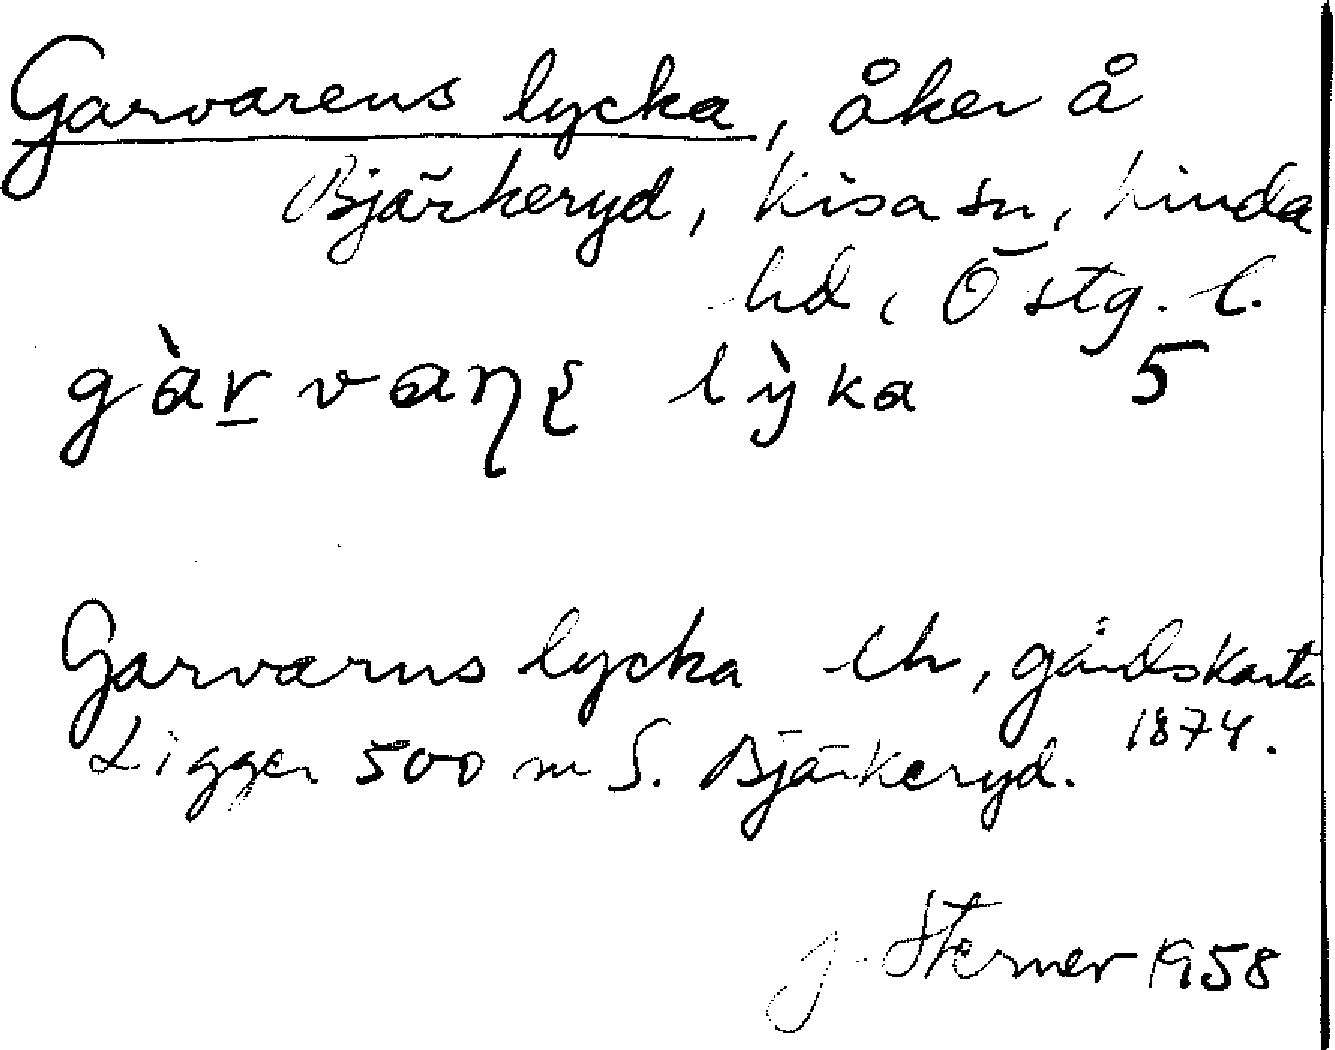 Garvarens lycka, åker å
Bjärkeryd, Kisa sn, Kinda
hd, Östg. l.
gàr̠vaɳʂ lỳka 5
Garvarns lycka Uh, gårdskarta
1874.
Ligger 500 m S. Bjärkeryd.
J. Sterner 1958